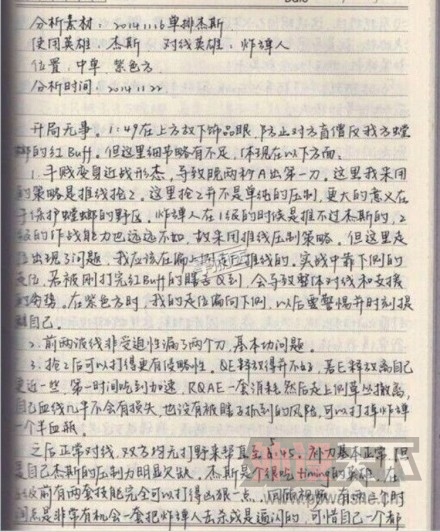 分析素材：2014.11.16单排杰斯
使用英雄：杰斯 对线英雄：炸弹人
位置：中单 紫色方
分析时间：2014.11.22
开局无事。1:49在上方放下饰品眼，防止对方盲僧反我方螳
螂的红Buff。但这里细节略有不足，体现在以下方面。
1. 手贱变身近战形态，导致晚两秒A出第一刀。这里我采用
的策略是推线抢2。这里抢2并不是单纯的压制，更大的意义在
于保护螳螂的野区，炸弹人在1级的时候是推不过杰斯的，2
级的作战能力也远远不如，故采用推线压制策略。但这里走
位出现了问题，我应该在偏上侧走位推线的，实战中靠下侧的
走位，若被刚打完红Buff的瞎子Q到，会导致整体对线和支援
的 。在紫色方时，我的走位偏向下侧，以后要警惕并时刻提
醒自己。
2. 前两波线非受迫性漏3两个刀，基本功问题。
3. 抢2后可以打得更有侵略性，QE释放得并不好，若E释放离自己
更近一些，第一时间吃到加速，RQAE一套消耗然后走上侧草丛撤离，
自己血线几乎不会有损失，也没有被瞎子抓到的风险，可以打掉炸弹
个半血瓶。
之后正常对线，双方均无打野来帮直至5:45。补刀基本正常，但
是自己杰斯的压制力明显欠缺，杰斯是个很吃timing的英雄，在
级前有两套技能完全可以打得凶狠一点，回顾视频，有两三个时
间点是非常有机会一套把炸弹人击杀或是逼闪的，可惜自己一个都